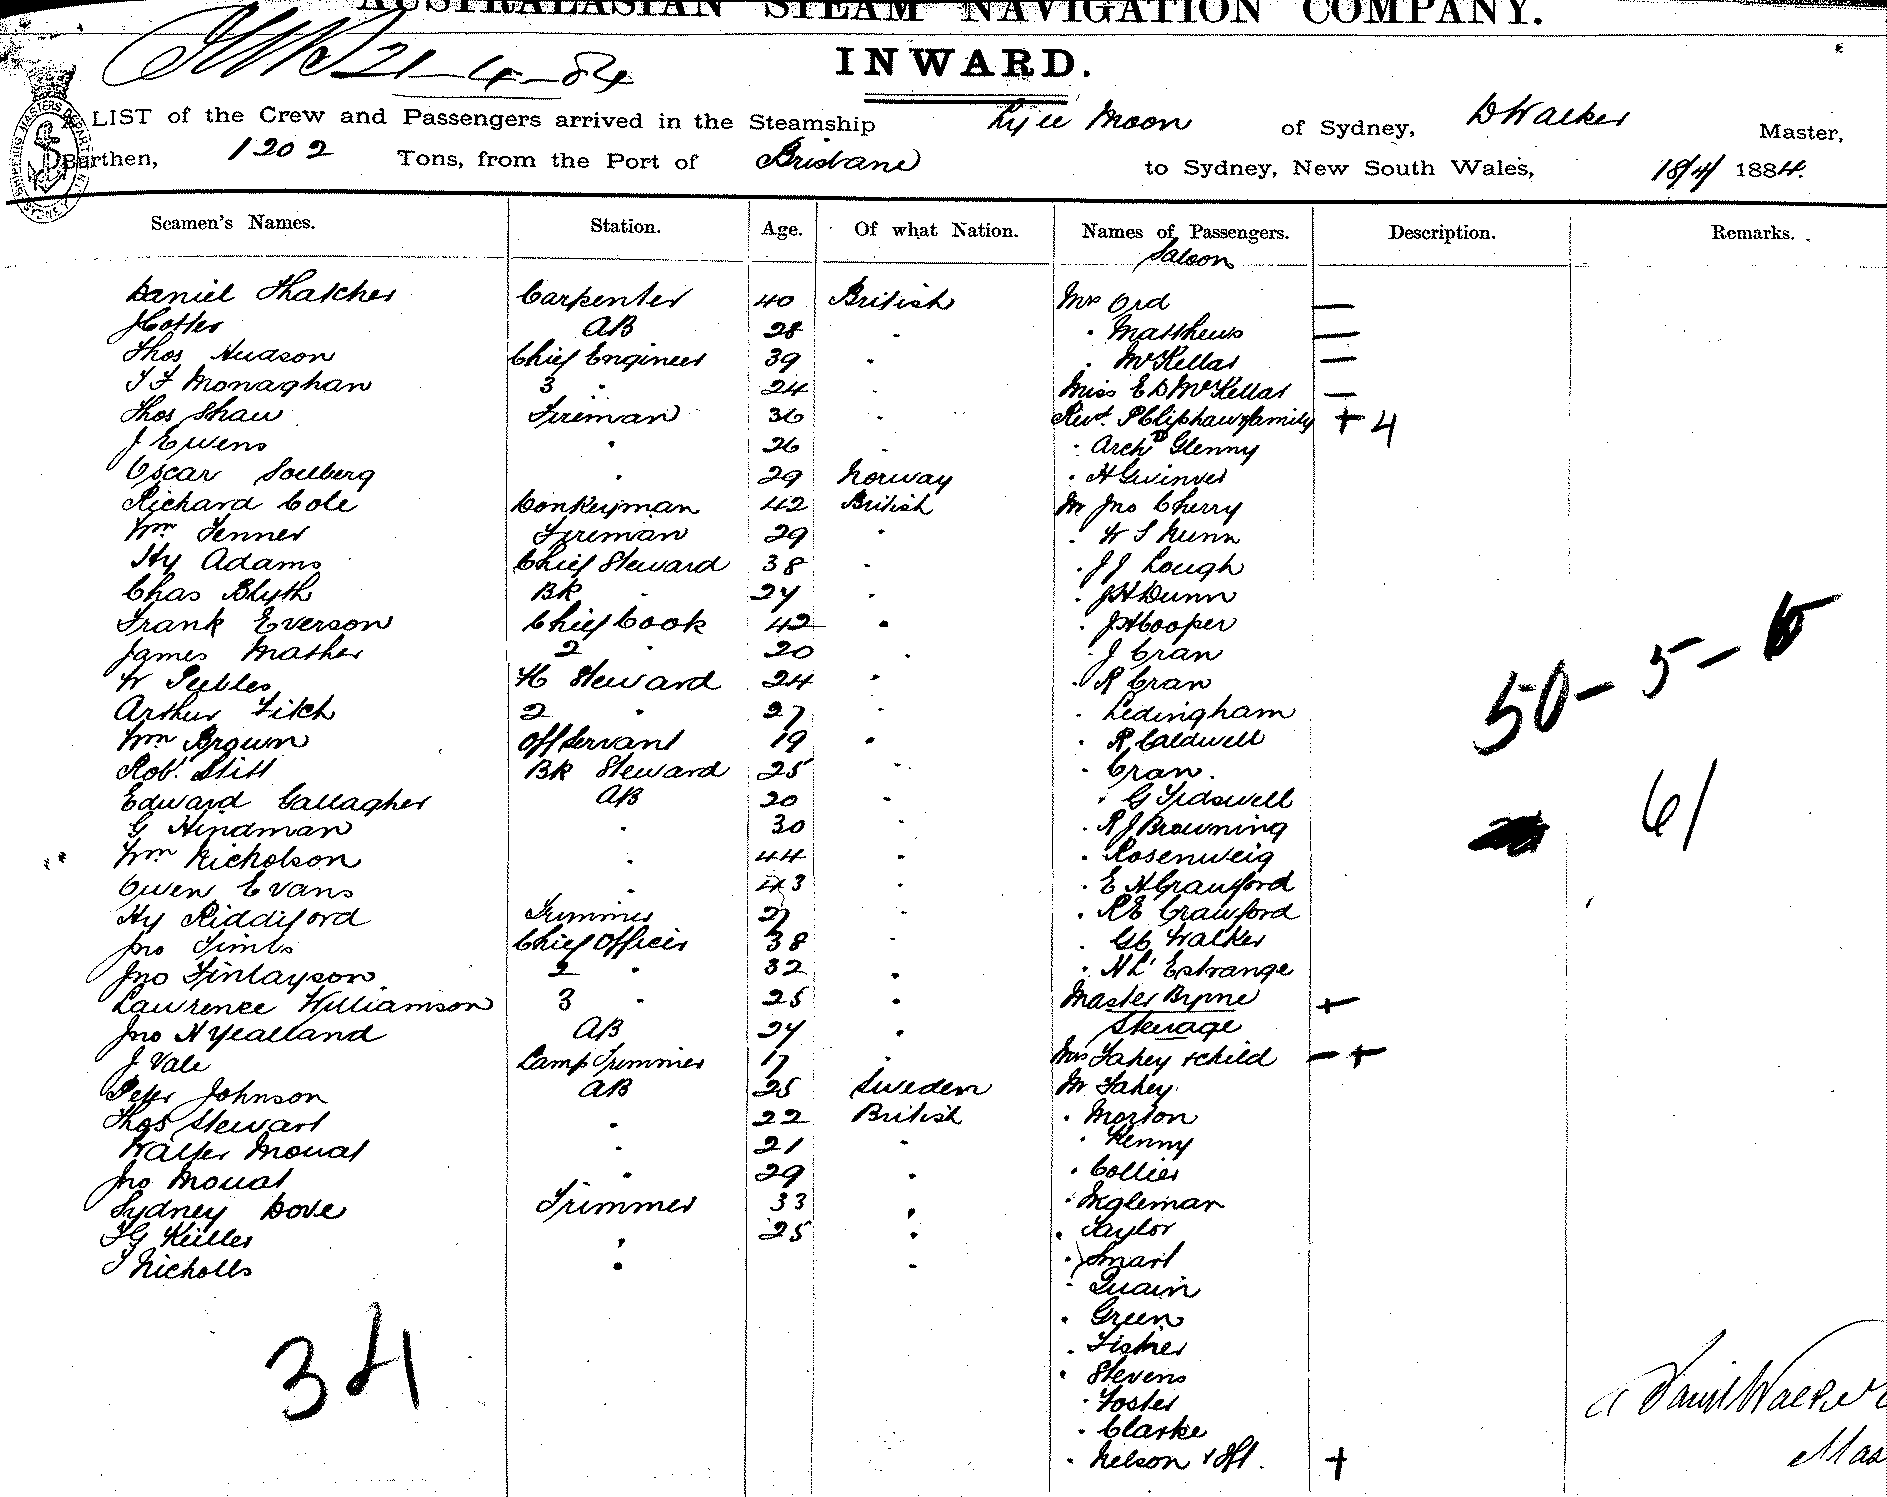 AUSTRALASIAN STEAM NAVIGATION COMPANY.
21-4-84
INWARD.
A LIST of the Crew and Passengers arrived in the Steamship Ly ee Moon of Sydney, D Walker Master,
Burthen, 1202 Tons, from the Port of Brisbane to Sydney, New South Wales, 18/4/ 1884.
Seamen's Names. Station. Age. Of what Nation. Names of Passengers. Description. Remarks.
Saloon
Daniel Thatcher Carpenter 40 British Mrs Ord —
J Cotter AB 28 " " Matthews —
Thos Hudson Chief Engineer 39 " " McKellar —
T F Monaghan 3 " 24 " Miss E D McKellar —
Thos Shaw Fireman 36 " Revd. P Cliphaw & family + 4
J Ewens " 26 " " Archd Glenny
Oscar Solberg " 29 Norway " H Gwinver
Richard Cole Donkeyman 42 British Mr Jno Cherry
Wm Jenner Fireman 29 " " W S Nunn
Hy Adams Chief Steward 38 " " J J Lough
Chas Blyth BK " 24 " " J H Dunn
Frank Everson Chief Cook 42 " " J H Cooper
James Mather 2 " 20 " " J Cran
W Peebles Steward 24 " " R Cran
Arthur Fitch 2 " 27 " " Ledingham
Wm Brown Off Servant 19 " " R Caldwell
Robt. Stitt BK Steward 25 " " Cran.
Edward Gallagher AB 20 " " G Tidswell
G Hindman " 30 " " R J Browning
Wm Nicholson " 44 " " Rosenweig
Owen Evans " 43 " " E H Crawford
Hy Riddiford Trimmer 27 " " R E Crawford
Jno Simls Chief Officer 38 " " G C Walker
Jno Finlayson 2 " 32 " " H L'Estrange
Lawrence Williamson 3 " 25 " Master Byrne +
Jno H Yealland AB 24 " Steerage
J Vale Lamp Trimmer 17 " Mrs Fahey & child — +
Peter Johnson AB 25 Sweden Mr Fahey
Thos Stewart " 22 British " Morton
Walter Mouat " 21 " " Kenny
Jno Mouat " 29 " " Collier
Sydney Dove Trimmer 33 " " Ingleman
T G Keller " 25 " " Taylor
T Nicholls " " " Smart
" Quain
" Green
" Fisher
" Stevens
" Foster
" Clarke
" Nelson & +
50 - 5 - 6
61
34
David Walker
Mas